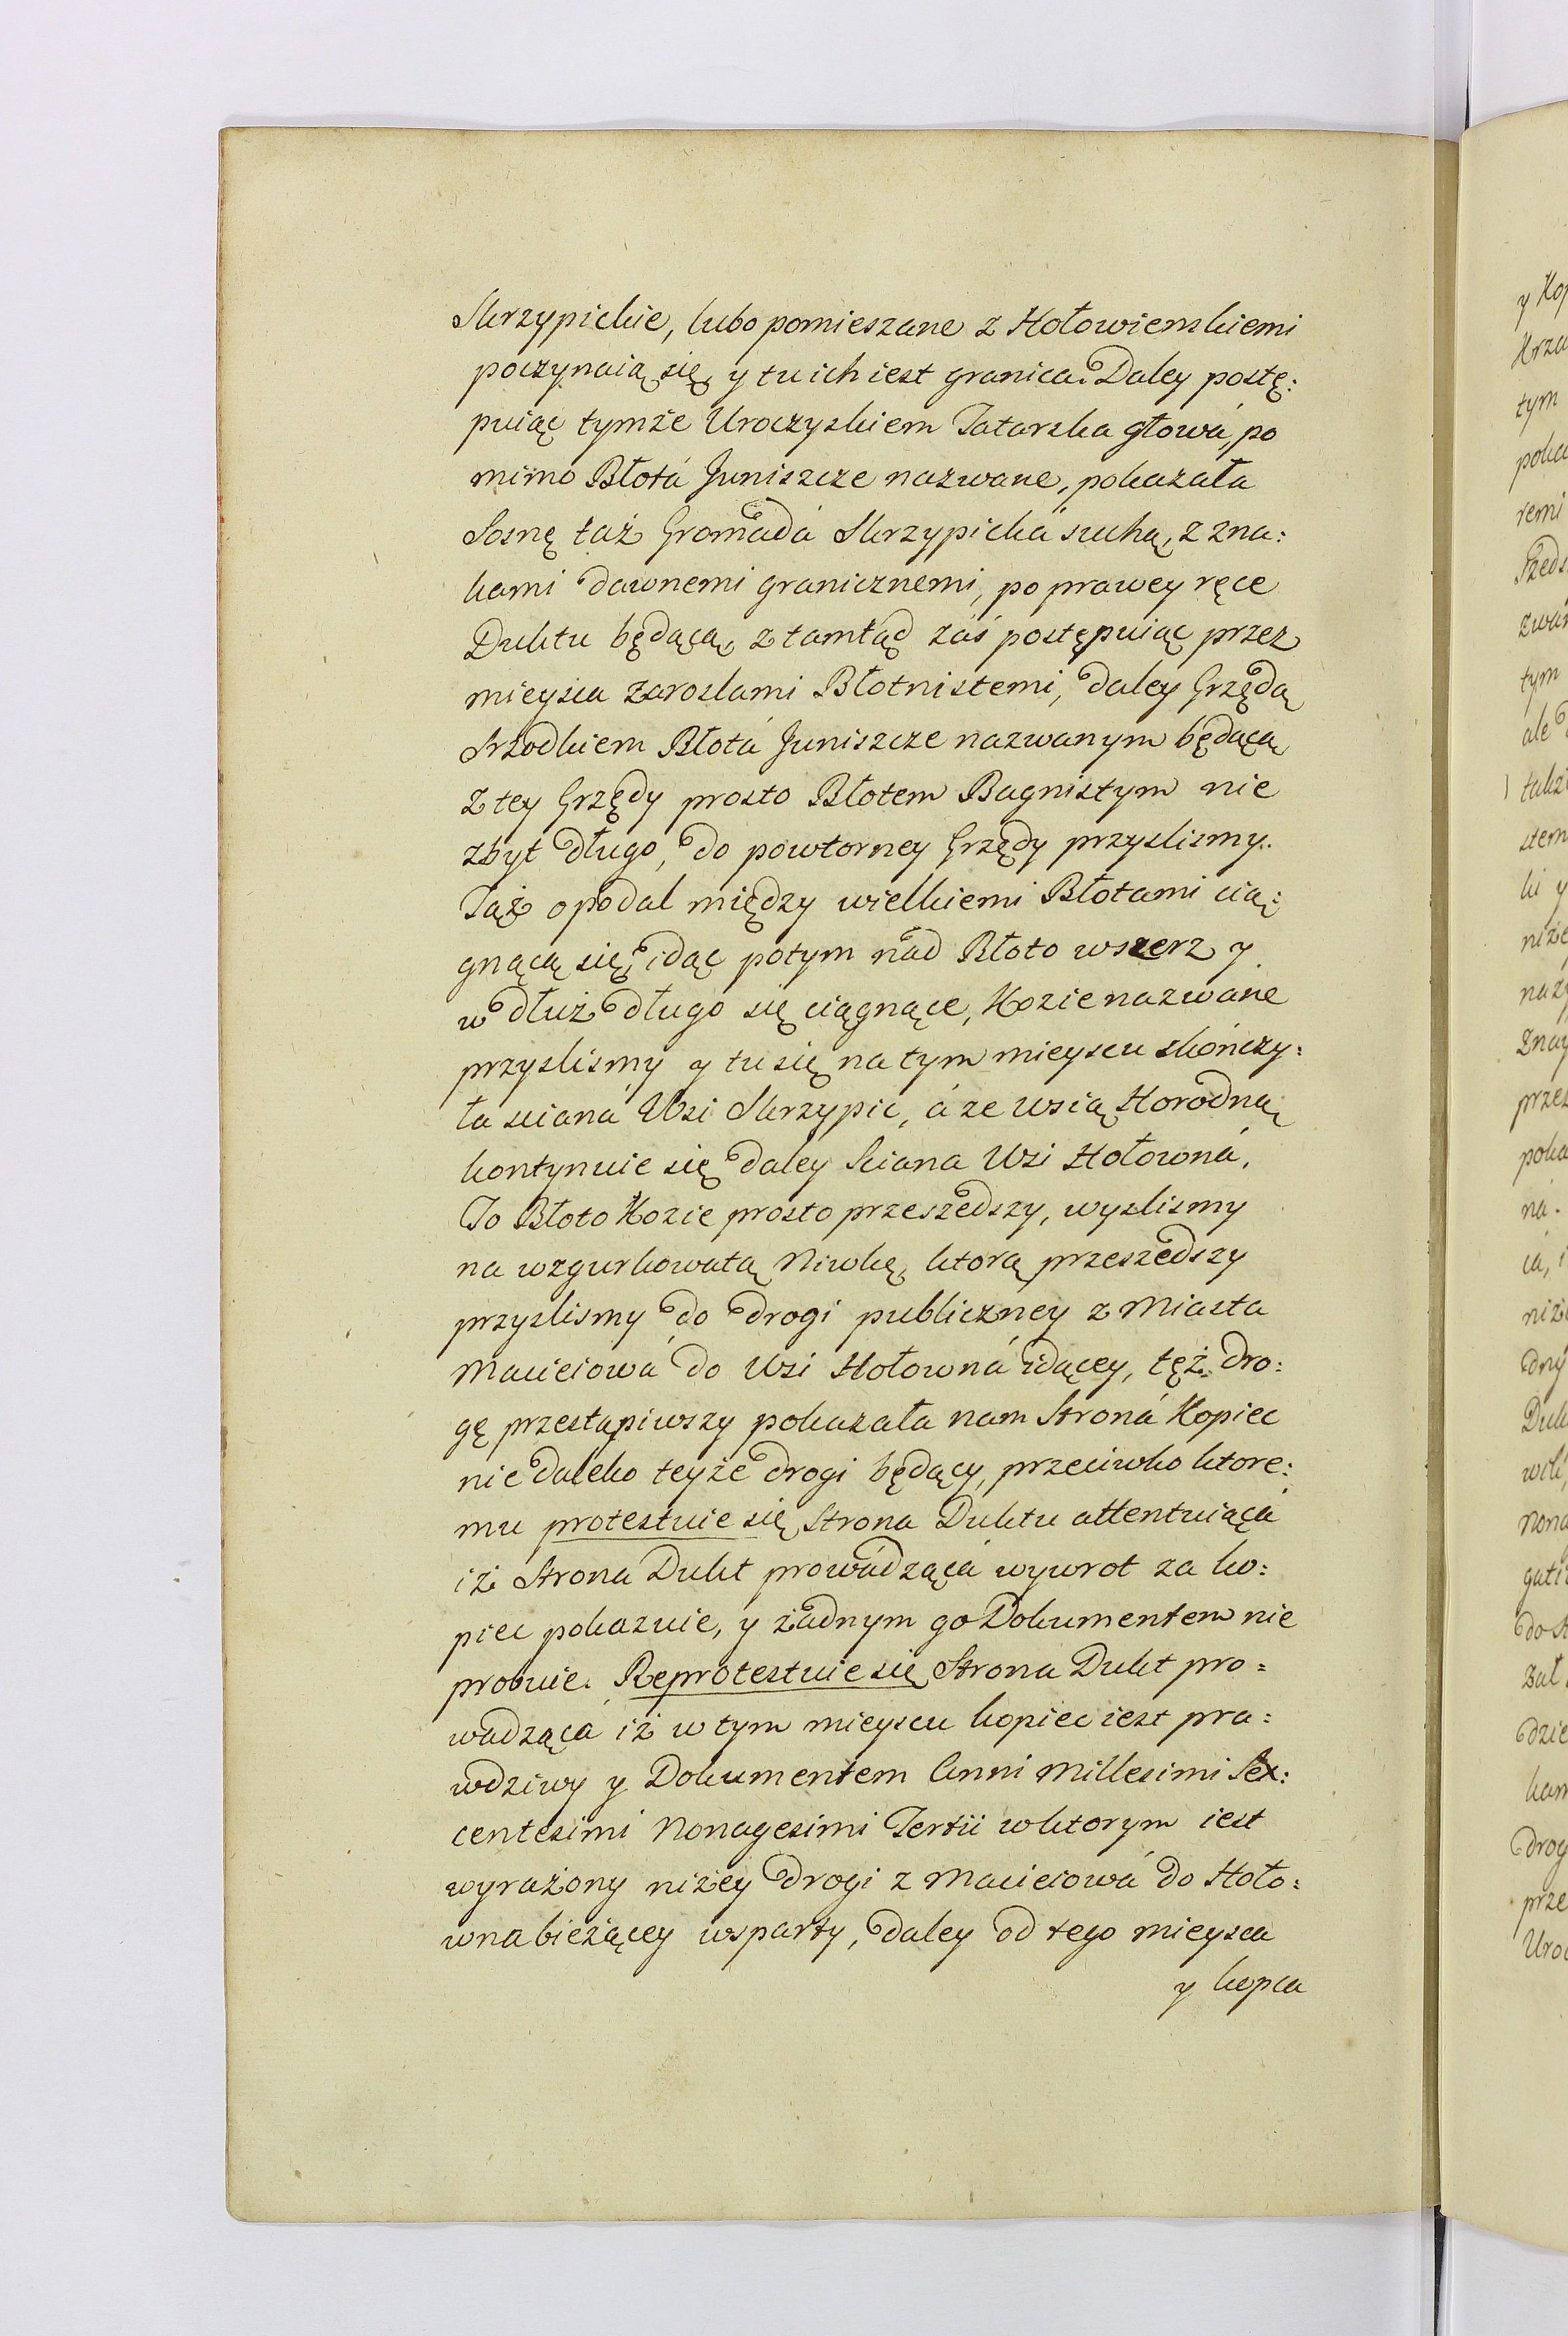 Skrzypickie, lubo pomieszane z Hołowienskiemi
poczynaią się, y tu ich iest granica. Daley postę:
puiąc tymże Uroczyskiem Tatarska głowá, po
mimo Błotá Juniszcze nazwane, pokazała
Sosnę taż Gromadá Skrzypická suchą, z zna:
kami dawnemi granicznemi, po prawey ręce
Duktu będącą, z tamtąd zaś postępuiąc przez
mieysca zaroslami Błotnistemi, daley Grzędą
Srzodkiem Błotá Juniszcze nazwanym będącą
z tey Grzędy prosto Błotem Bagnistym nie
zbyt długo, do powtorney Grzędy przyslismy.
Tąż opodal między wielkiemi Błotami cią:
gnącą się, idąc potym nad Błoto wszerz y
w dłuż długo się ciągnące, Kozie nazwane
przyslismy y tu się na tym mieyscu skończy:
ła scianá Wsi Skrzypic, á ze wsią Horodną
kontynuie się daley Sciana Wsi Hołowná,
To Błoto Kozie prosto przeszedszy, wyslismy
na wzgurkowatą Niwkę, ktorą przeszedszy
przyslismy do drogi publiczney z Miasta
Macieiowá do Wsi Hołowná idącey, tęż dro:
gę przestąpiwszy pokazała nam Stroná Kopiec
nie daleko teyże drogi będący, przeciwko ktore:
mu protestuie się Strona Duktu attentuiącá
iż Strona Dukt prowadzącá wywrot za ko:
piec pokazuie, y żadnym go Dokumentem nie
probuie. Reprotestuie się Strona Dukt pro:
wadzącá iż w tym mieyscu kopiec iest pra:
wdziwy y Dokumentem Anni Millesimi Sex:
centesimi Nonagesimi Tertii w ktorym iest
wyrażony niżey drogi z Macieiowá do Hoło:
wna bieżącey wsparty, daley od tego mieysca
y kopca